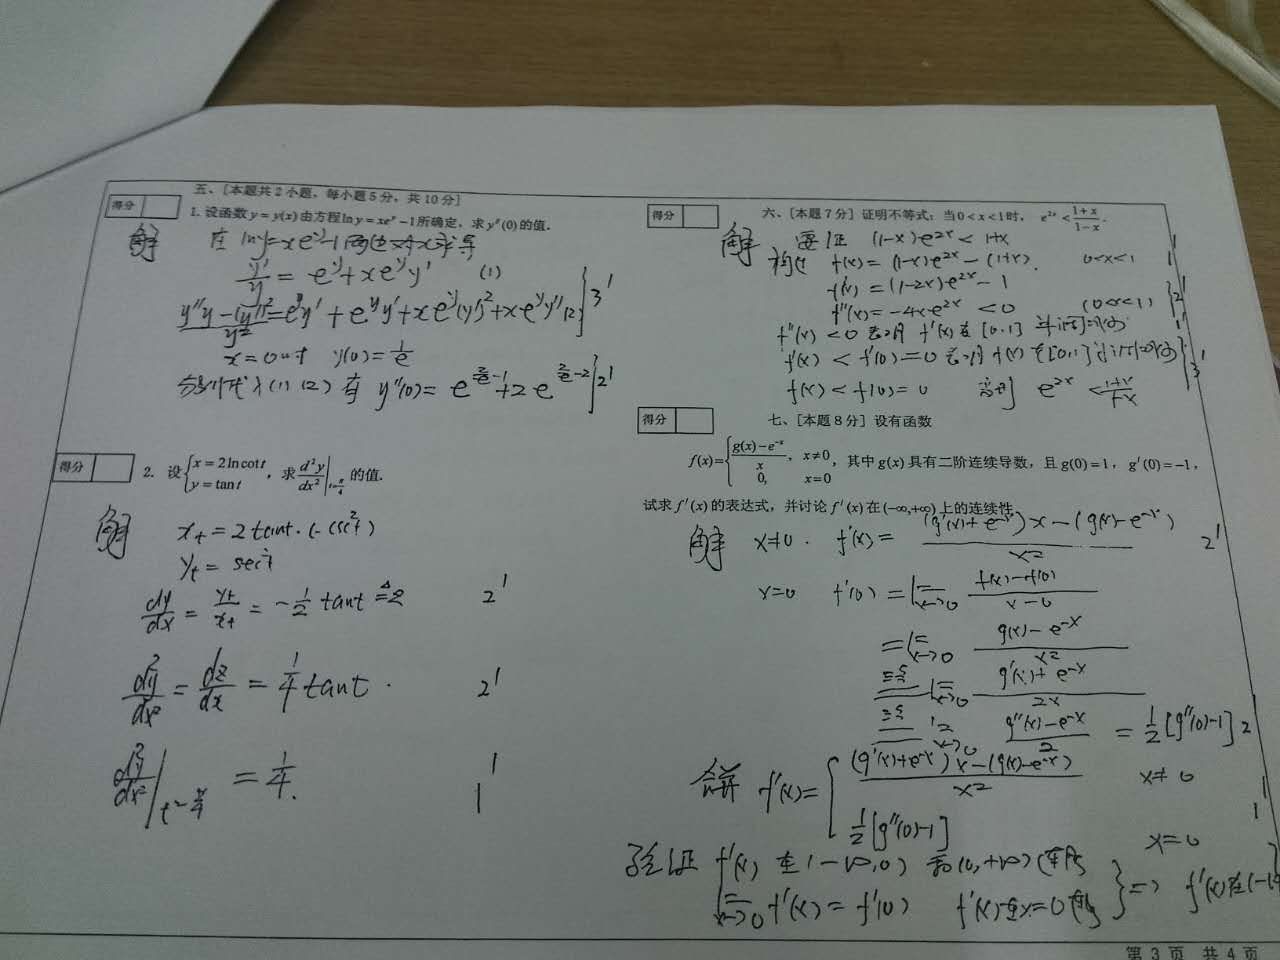 五、[本题共2小题，每小题5分，共10分]
得分
1. 设函数 y = y(x) 由方程 ln y = xe^y − 1 所确定，求 y″(0) 的值.
解 在 lny=xe^y-1 两边对x求导
y'/y = e^y + xe^y y' (1)
(y''y - (y')²)/y² = e^y y' + e^y y' + xe^y(y')² + xe^y y'' (2) } 3'
x=0时 y(0)=1/e
分别代入(1)(2)有 y''(0) = e^(2/e-1) + 2e^(2/e-2) } 2'
得分
2. 设 { x = 2 ln cot t , y = tan t ，求 d²y/dx² |t=π/4 的值.
解 x_t = 2 tant·(-csc²t)
y_t = sec²t
dy/dx = y_t/x_t = -1/2 tant ≜ z 2'
d²y/dx² = dz/dx = 1/4 tant. 2'
d²y/dx² |t=π/4 = 1/4. 1'
得分
六、[本题7分] 证明不等式：当 0 < x < 1 时， e^(2x) < (1+x)/(1−x).
解 要证 (1-x)e^(2x) < 1+x 1'
构造 f(x) = (1-x)e^(2x) - (1+x). 0<x<1 1'
f'(x) = (1-2x)e^(2x) - 1
f''(x) = -4xe^(2x) < 0 (0<x<1) } 2'
f''(x) < 0 表明 f'(x) 在 [0,1] 单调减少 1'
f'(x) < f'(0) = 0 表明 f(x) 在 [0,1] 单调减少
f(x) < f(0) = 0 即 e^(2x) < (1+x)/(1-x) } 3'
得分
七、[本题8分] 设有函数
f(x) = { (g(x) − e^(−x))/x, x ≠ 0 ; 0, x = 0 ，其中 g(x) 具有二阶连续导数，且 g(0) = 1，g′(0) = −1，
试求 f′(x) 的表达式，并讨论 f′(x) 在 (−∞,+∞) 上的连续性.
解 x≠0. f'(x) = ((g'(x)+e^(-x))x - (g(x)-e^(-x)))/x² 2'
x=0 f'(0) = lim x→0 (f(x)-f(0))/(x-0)
= lim x→0 (g(x)-e^(-x))/x²
= lim x→0 (g'(x)+e^(-x))/2x
= lim x→0 (g''(x)-e^(-x))/2 = 1/2[g''(0)-1] 2'
f'(x) = { ((g'(x)+e^(-x))x - (g(x)-e^(-x)))/x² x≠0
1/2[g''(0)-1] x=0 1'
验证 f'(x) 在 (-∞,0) 和 (0,+∞) 连续
lim x→0 f'(x) = f'(0) f'(x)在x=0连续 } ⇒ f'(x)在(-
第 3 页 共 4 页